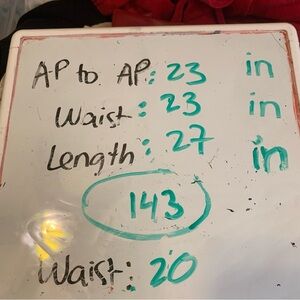 AP to AP: 23 in
Waist: 23 in
Length: 27 in
143
Waist: 20